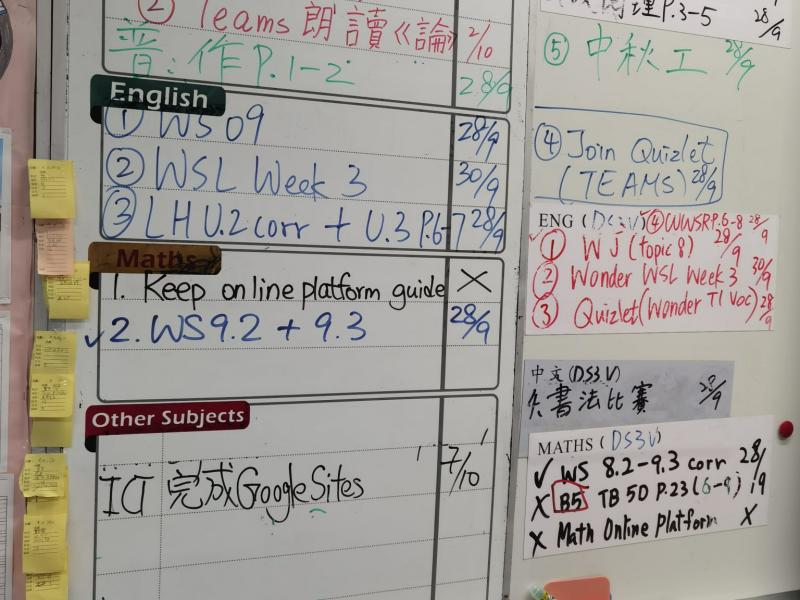 ② Teams 朗讀《論》 2/10
普:作P.1-2 28/9
English
① WS 09 28/9
② WSL Week 3 30/9
③ LH U.2 corr + U.3 P.6-7 28/9
Maths
1. Keep online platform guide X
✓2. WS 9.2 + 9.3 28/9
Other Subjects
完成Google Sites 7/10
理P.3-5 28/9
⑤ 中秋工 28/9
④ Join Quizlet
(TEAMS) 28/9
ENG (DS3V) ④ WWSR P.6-8 28/9
① WJ (topic 8) 28/9
② Wonder WSL Week 3 30/9
③ Quizlet (Wonder T1 Voc) 28/9
中文(DS3V)
書法比賽 28/9
MATHS (DS3V)
✓ WS 8.2-9.3 corr 28/
X B5 TB 5D P.23 (6-9) 19
X Math Online Platform X